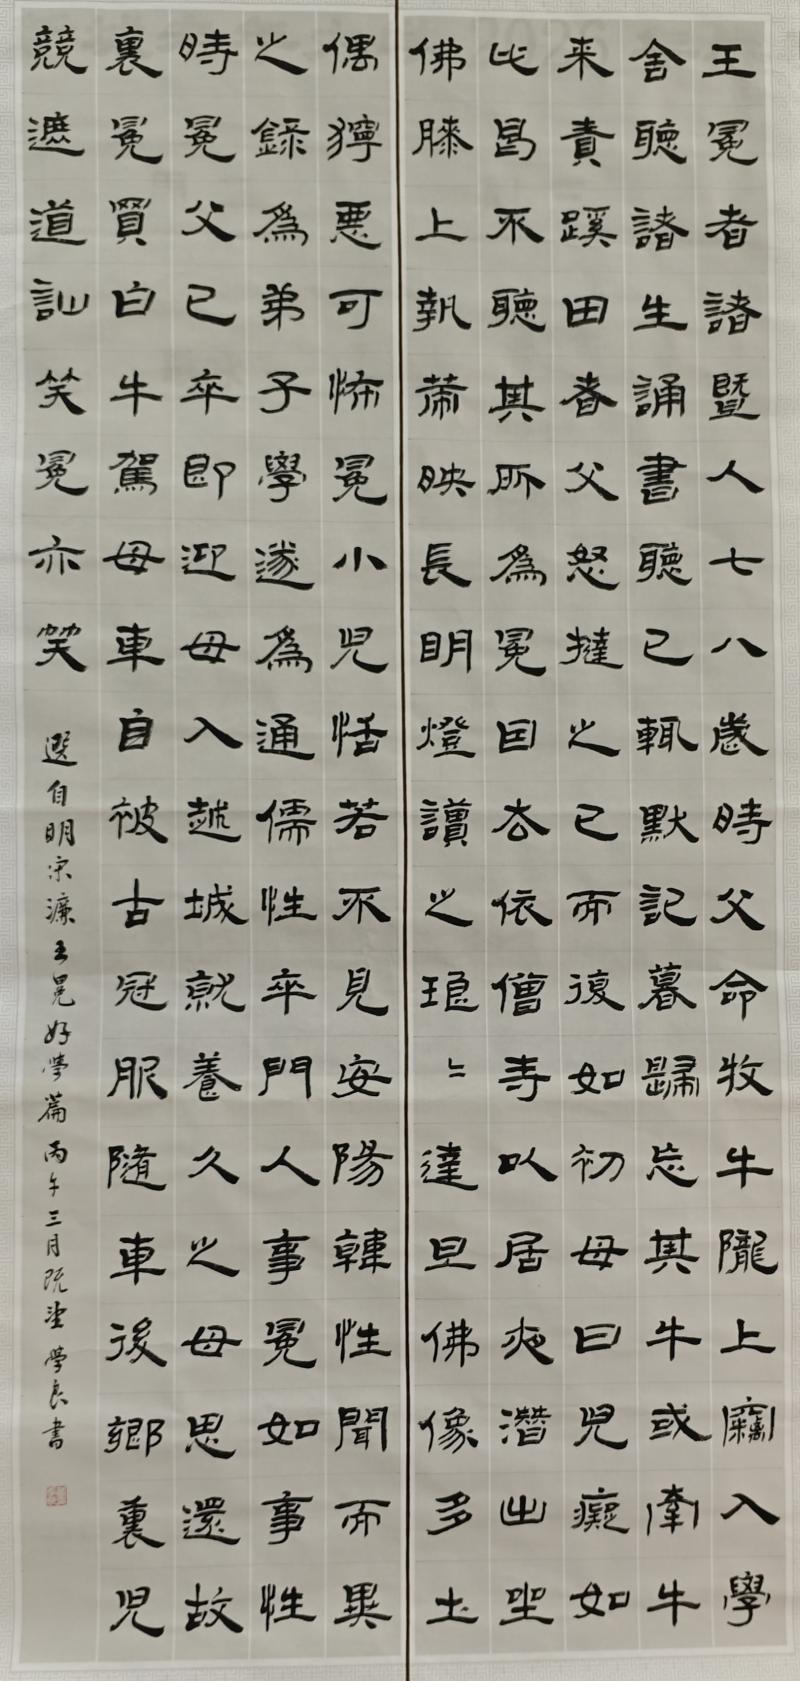 王冕者諸暨人七八歲時父命牧牛隴上竊入學
舍聽諸生誦書聽已輒默記暮歸忘其牛或牽牛
来責蹊田者父怒撻之已而復如初母曰兒癡如
此曷不聽其所為冕因去依僧寺以居夜潛出坐
佛膝上執策映長明燈讀之琅〻達旦佛像多土
偶獰惡可怖冕小兒恬若不見安陽韓性聞而異
之錄為弟子學遂為通儒性卒門人事冕如事性
時冕父已卒即迎母入越城就養久之母思還故
裏冕買白牛駕母車自被古冠服隨車後鄉裏兒
競遮道訕笑冕亦笑
選自明宋濂王冕好學篇丙午三月既望學良書